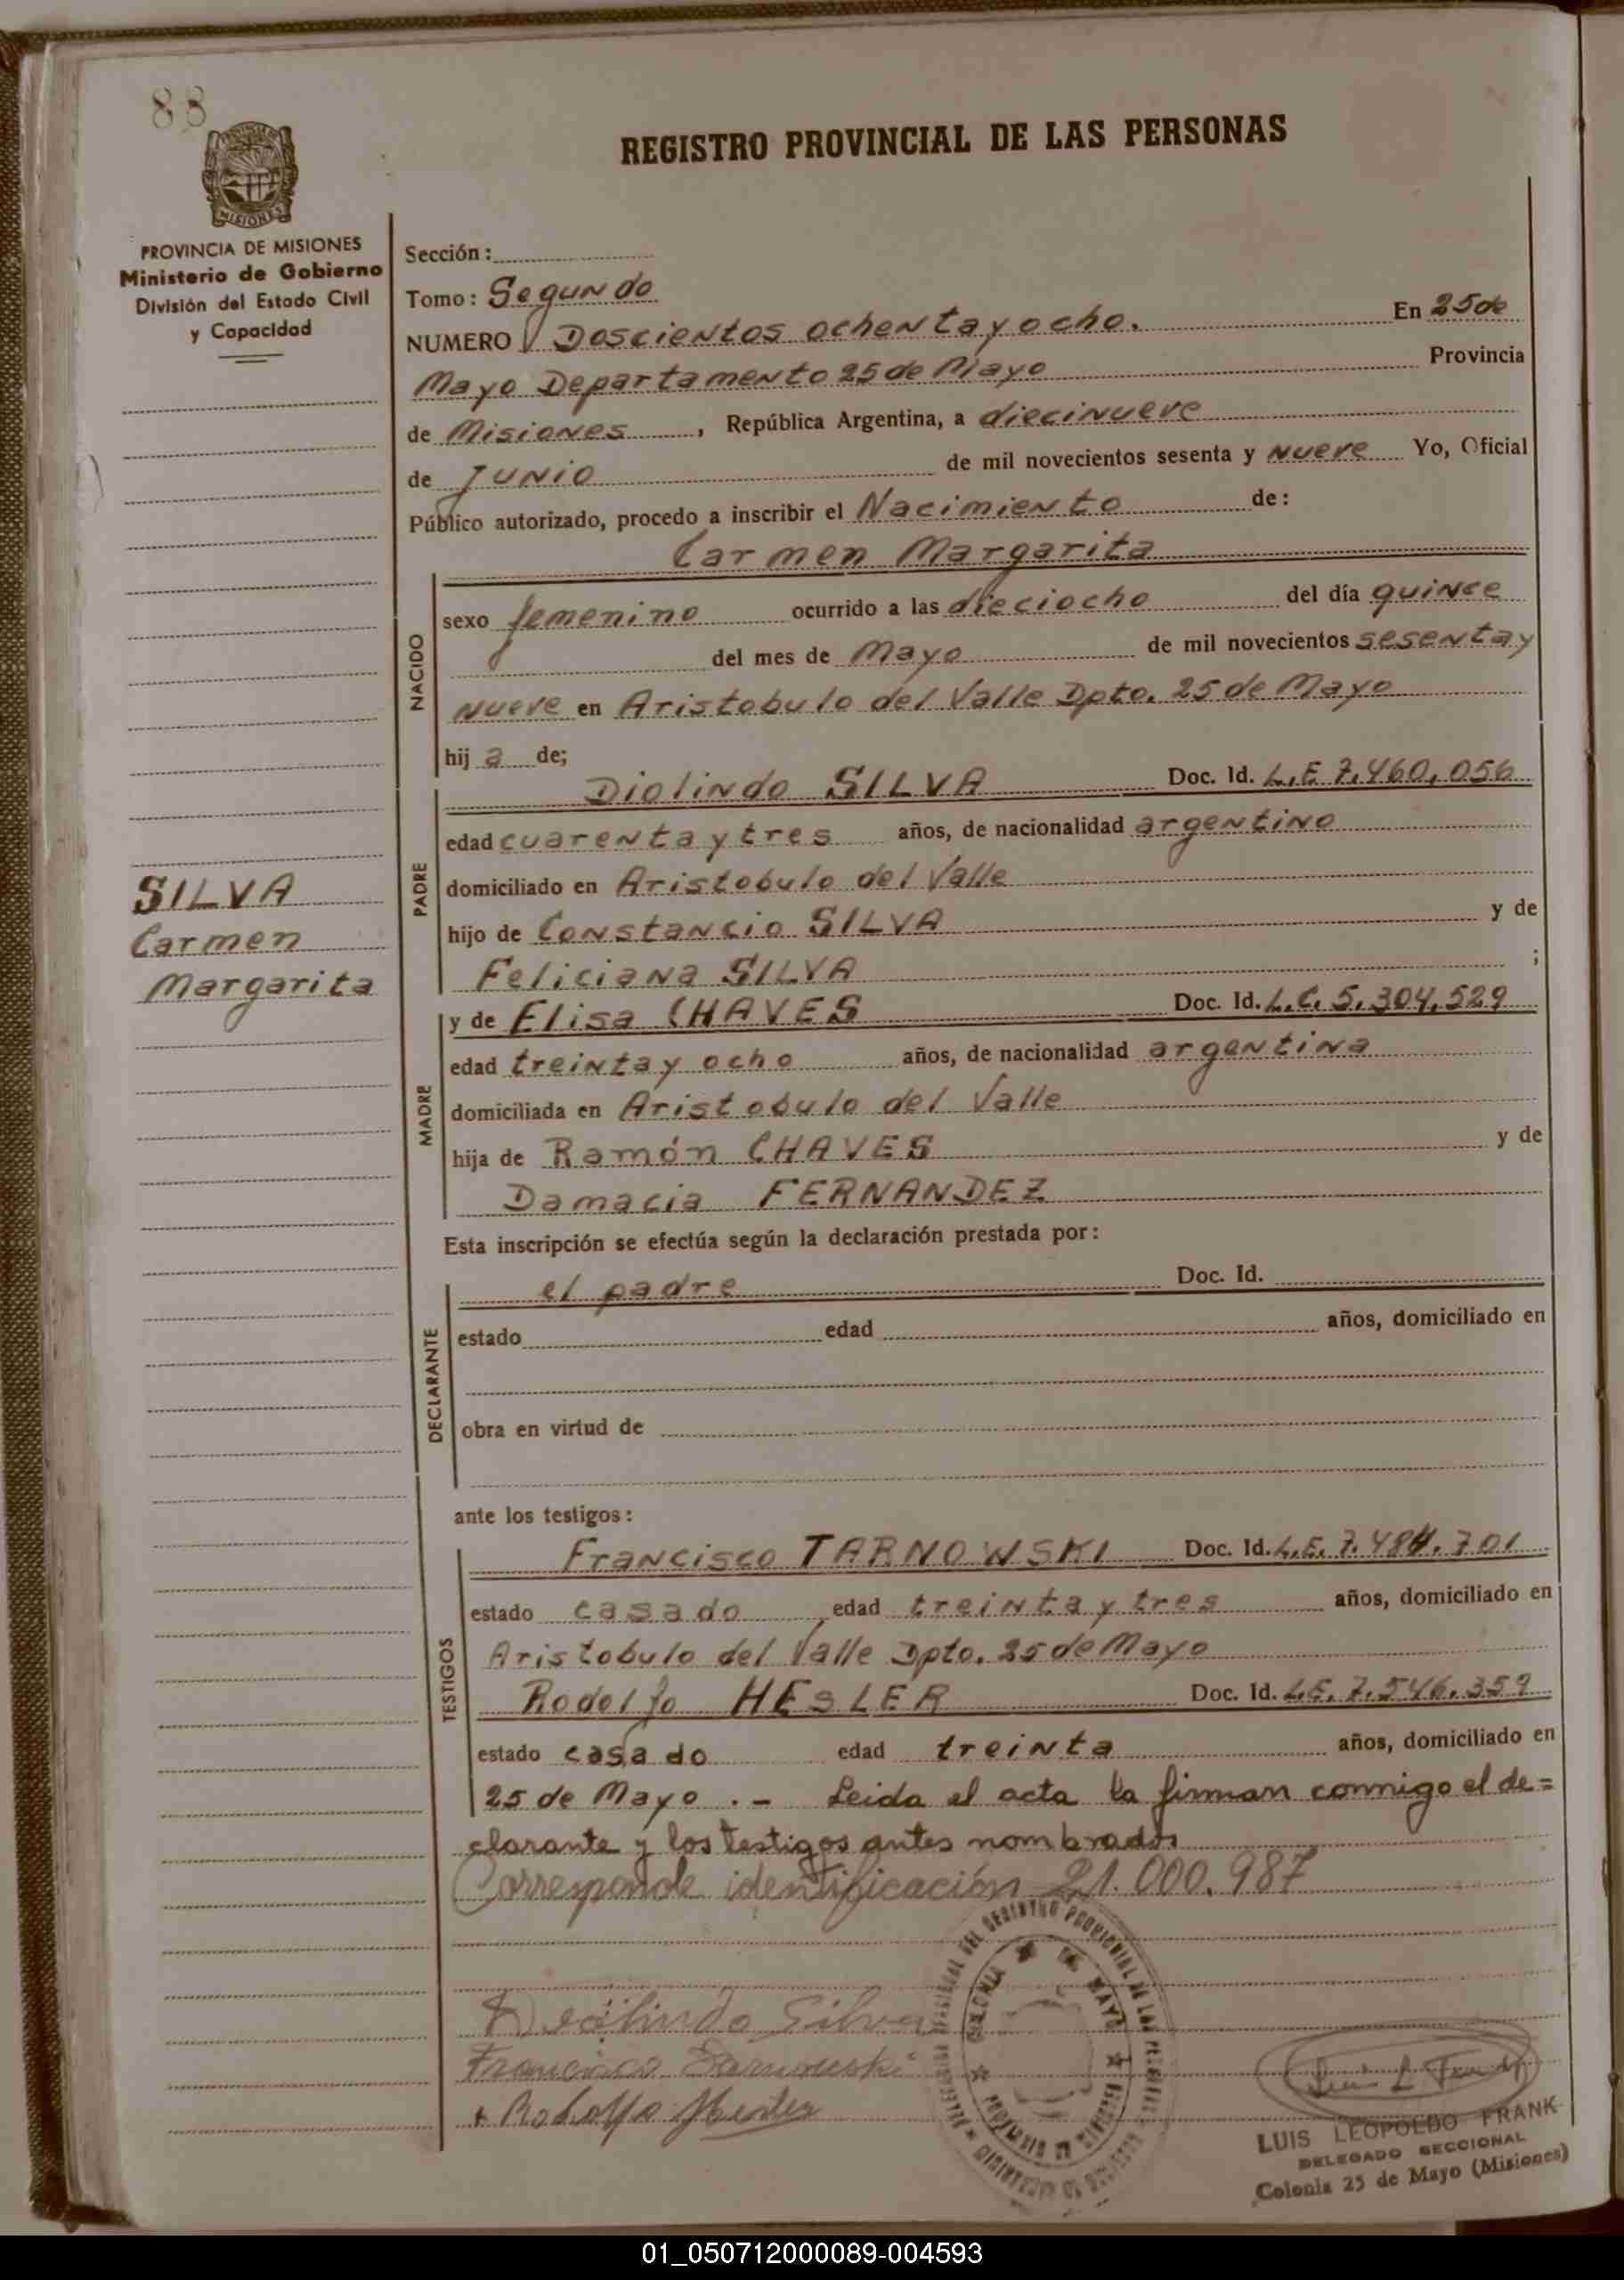 88
REGISTRO PROVINCIAL DE LAS PERSONAS
MISIONES
PROVINCIA DE MISIONES
Ministerio de Gobierno
División del Estado Civil
y Capacidad
Sección:
Tomo: Segundo
NUMERO Doscientos ochenta y ocho. En 25 de
Mayo Departamento 25 de Mayo Provincia
de Misiones, República Argentina, a diecinueve
de Junio de mil novecientos sesenta y nueve Yo, Oficial
Público autorizado, procedo a inscribir el Nacimiento de:
Carmen Margarita
NACIDO
sexo femenino ocurrido a las dieciocho del día quince
del mes de Mayo de mil novecientos sesenta y
nueve en Aristobulo del Valle Dpto. 25 de Mayo
hija de;
PADRE
Diolindo SILVA Doc. Id. L.E 7.460,056
edad cuarenta y tres años, de nacionalidad argentino
domiciliado en Aristobulo del Valle
hijo de Constancio SILVA y de
Feliciana SILVA ;
SILVA
Carmen
Margarita
MADRE
y de Elisa CHAVES Doc. Id. L.C. 5.304,529
edad treinta y ocho años, de nacionalidad argentina
domiciliada en Aristobulo del Valle
hija de Ramón CHAVES y de
Damacia FERNANDEZ
Esta inscripción se efectúa según la declaración prestada por:
DECLARANTE
el padre Doc. Id.
estado edad años, domiciliado en
obra en virtud de
ante los testigos:
TESTIGOS
Francisco TARNOWSKI Doc. Id. L.E. 7.484.701
estado casado edad treinta y tres años, domiciliado en
Aristobulo del Valle Dpto. 25 de Mayo
Rodolfo HESLER Doc. Id. L.E. 7.546.359
estado casado edad treinta años, domiciliado en
25 de Mayo .- Leida el acta la firman conmigo el de=
clarante y los testigos antes nombrados
Corresponde identificación 21.000.987
Deolindo Silva
Francisco Tarnowski
Rodolfo Hesler
LUIS LEOPOLDO FRANK
DELEGADO SECCIONAL
Colonia 25 de Mayo (Misiones)
01_050712000089-004593